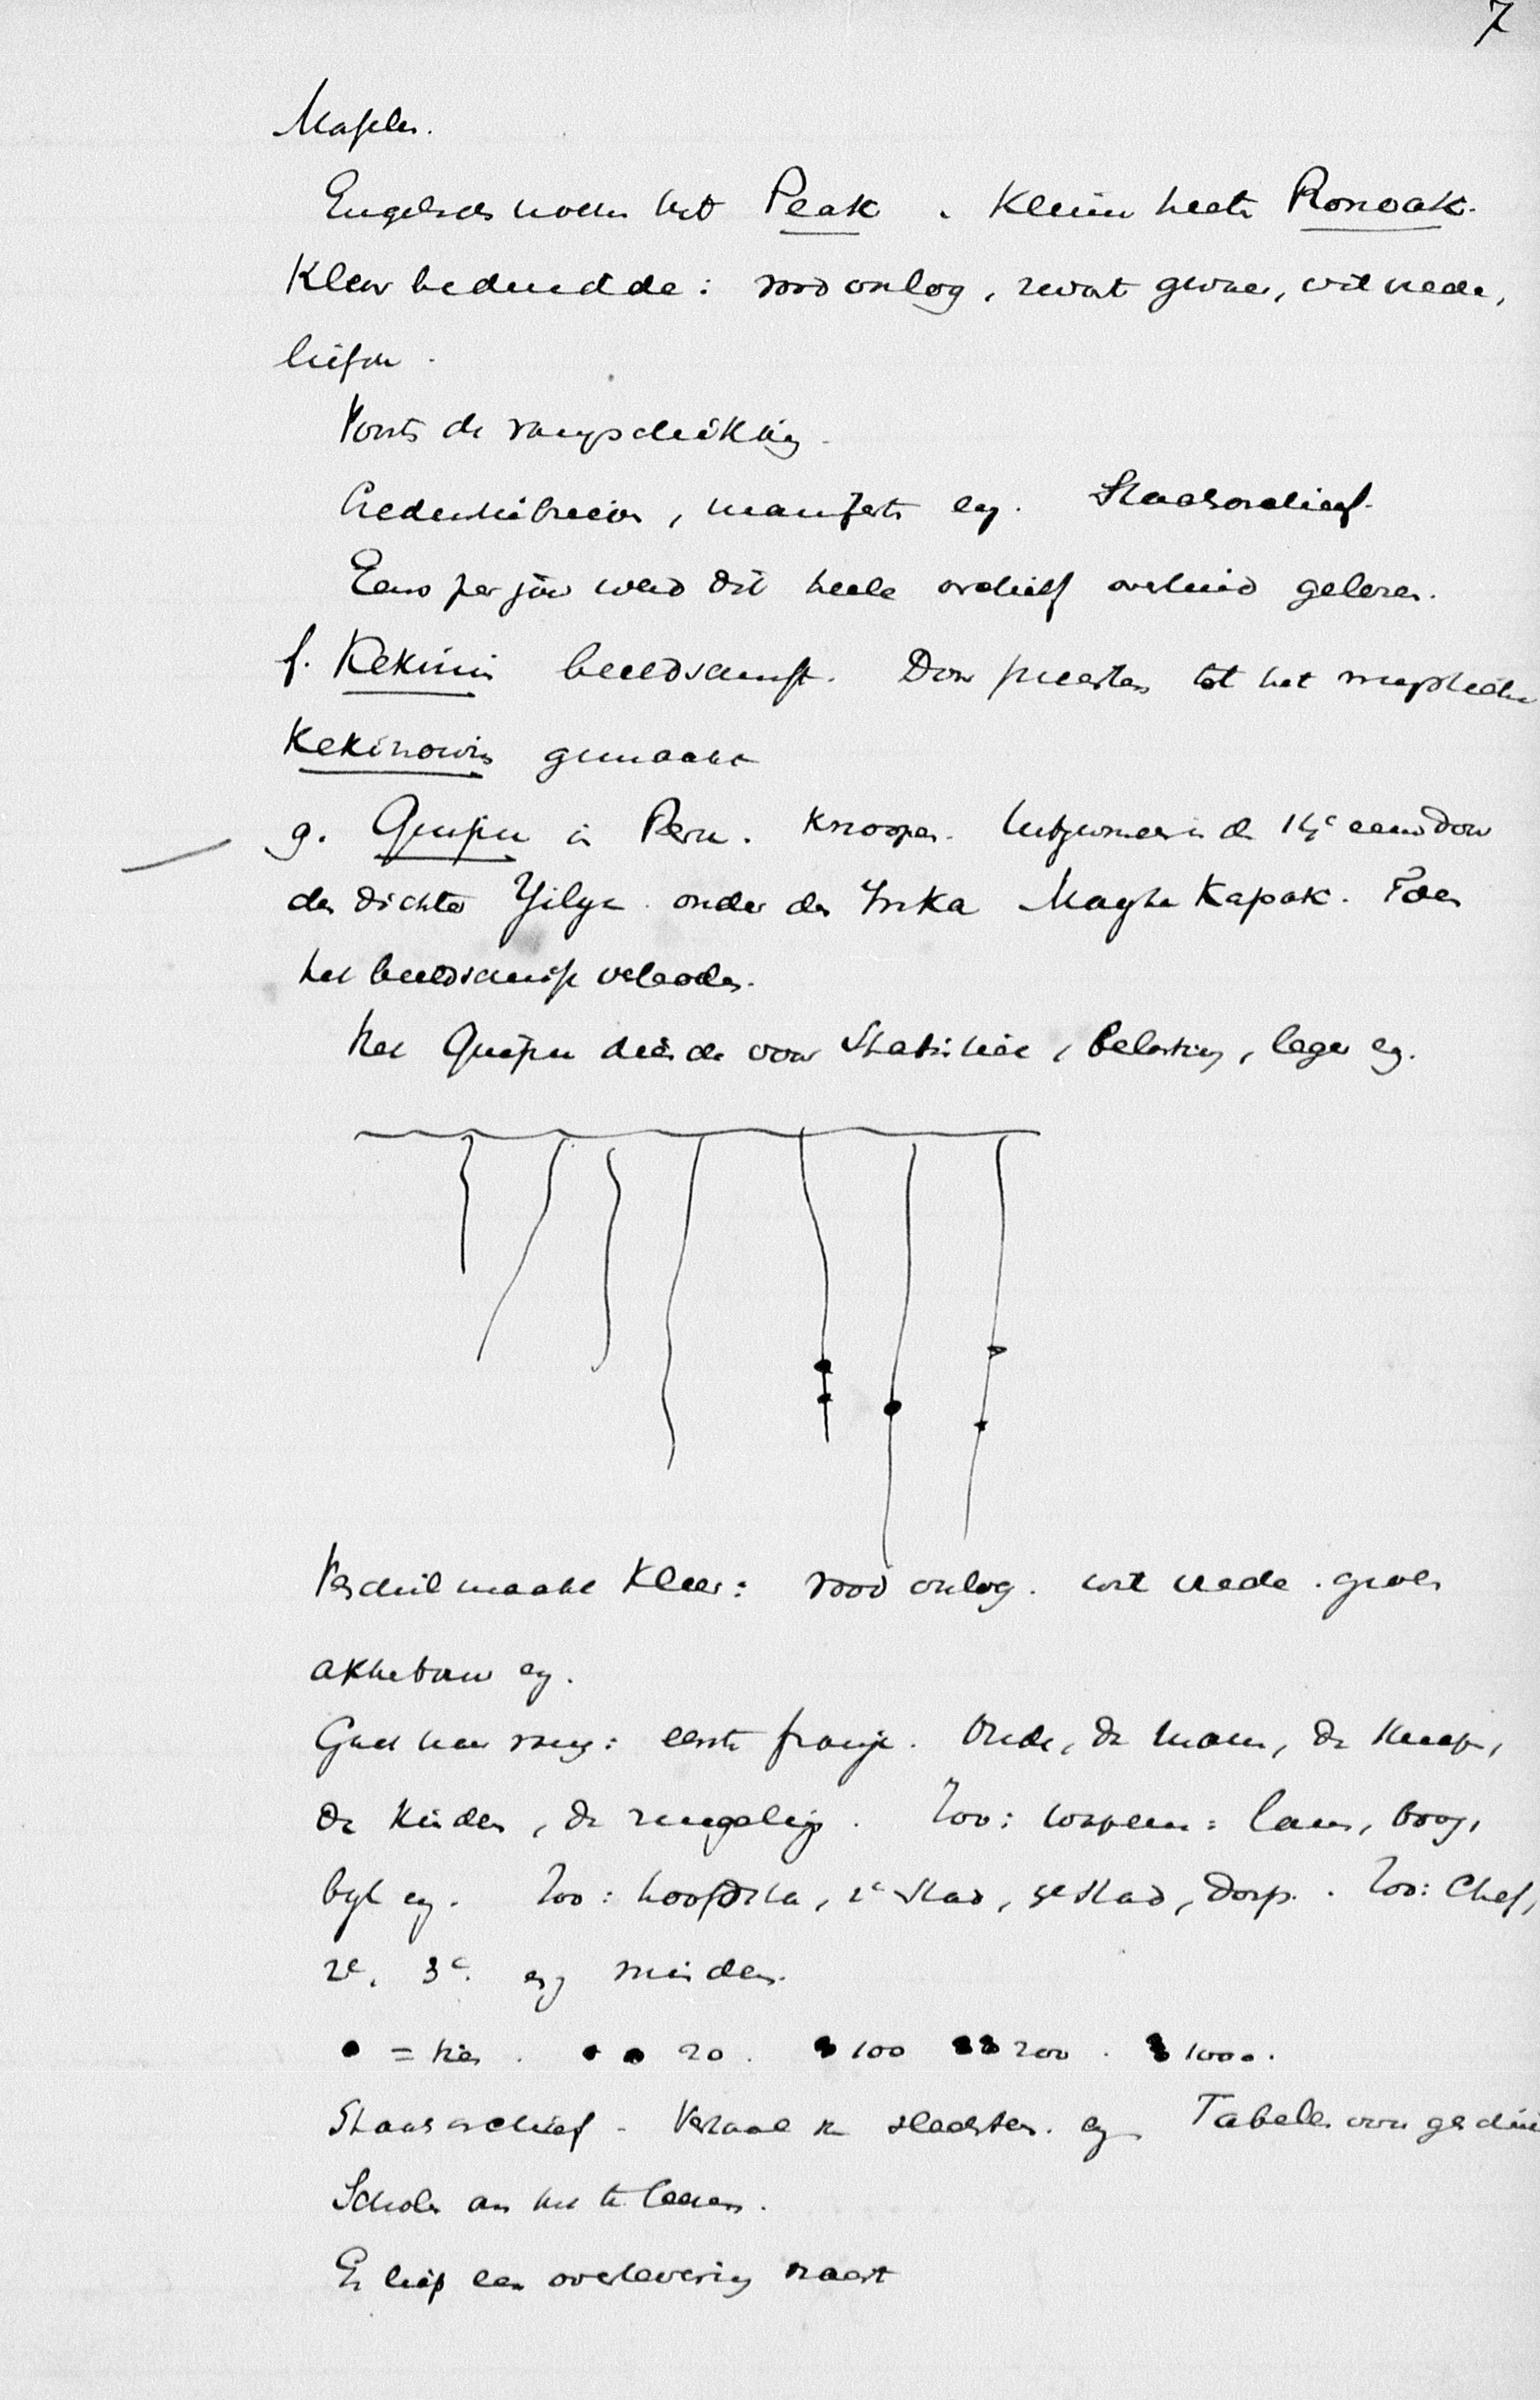 7
Engelschen noemen het Peak. Kleine heete Ronoak.
Kleur beduidde: rood oorlog, zwart gevaar, wit vrede,
Voorts de rangschikking.
manifest enz. Staatsarchief.
Eens per jaar werd dit heele archief overluid gelezen.
f. Kekiwin beeldschrift. Door priesters tot het
Kekinowin gemaakt
g. Quipu in Peru. Knoopen. in de 14e eeuw door
den dichter Yilya onder den Inka Kapak. Toen
het beeldschrift verboden.
Het Quipu diende voor Statistiek, Belasting, leger enz.
Verschil maakt kleur: rood oorlog. wit vrede. groen
akkerbouw enz.
Gaat naar rang: eerste franje. Oude, dan man, dan knaap,
dan kinder, dan zuigeling. Zoo: wapen: lans, boog,
bijl enz. Zoo: hoofdsta, 2e stad, 3e stad, dorp. Zoo: Chef,
2e, 3e enz minder.
• = tien. • • 20. 100 200. 1000.
Staatsarchief. Verhaal en enz Tabellen voor
Scholen om het te leeren.
Er liep een overlevering naast